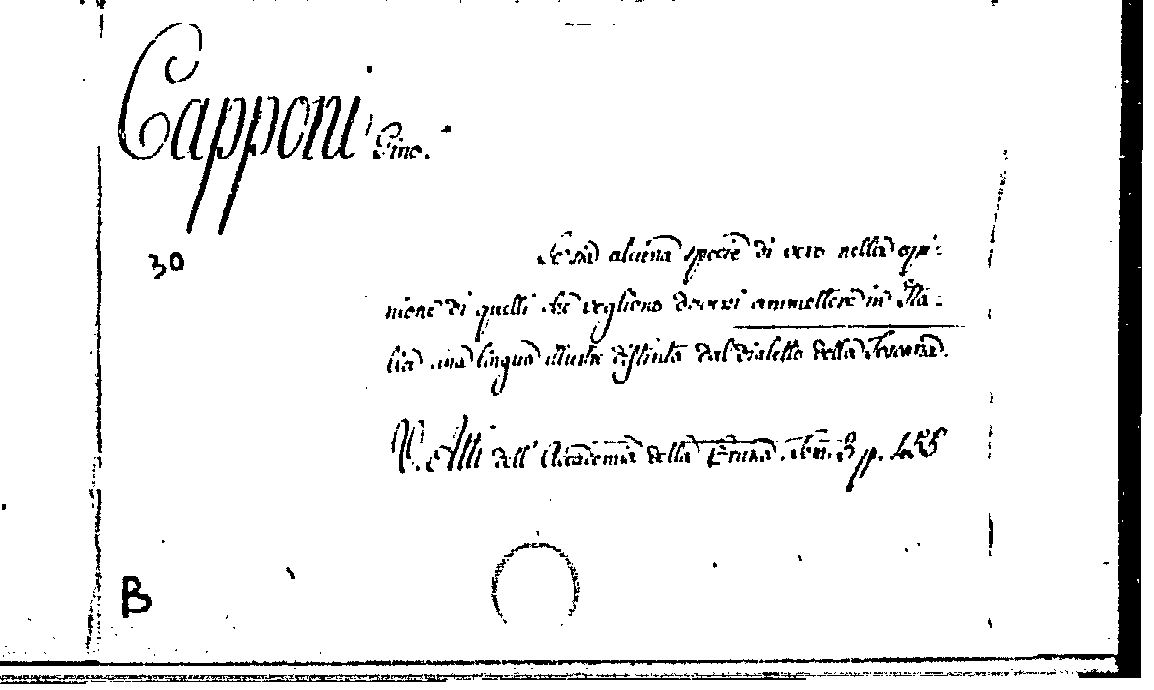 Capponi, Gino.
30
Se sia alcuna specie di vero nella opi-
nione di quelli che vogliono doversi ammettere in Ita-
lia una lingua illustre distinta dal dialetto della Toscana.
V. Atti dell'Accademia della Crusca. Tom. 3 p. 155
B